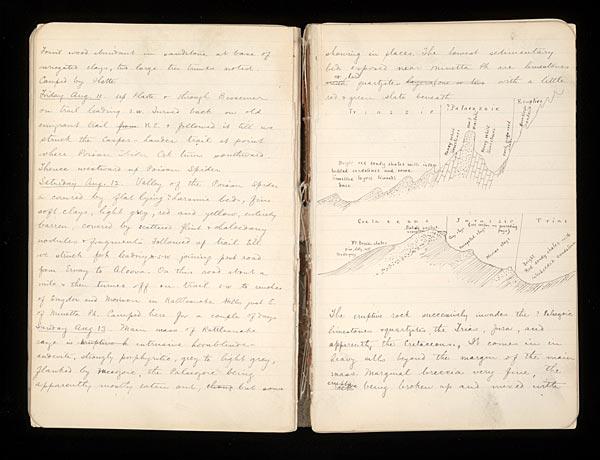 Fossil wood abundant in sandstone at base of
variegated clays, two large tree trunks noted.
Camped by Platte
Friday Aug. 11. Up Platte & through Bessemer
on trail leading s.w. Turned back on old
emigrant trail from N.E. & followed it till we
struck the Casper-Lander trail at point
where Poison Spider Crk turns southward
Thence westward up Poison Spider
Saturday Aug. 12. Valley of the Poison Spider
is covered by flat lying Laramie beds, fine
soft clays, light grey, red and yellow, entirely
barren, covered by scattered flint & chalcedony
nodules & fragments. Followed up trail till
we struck fork leading s.w. joining post road
from Ervay to Alcova. On this road about a
mile & then turned off on trail s.w. to ranches
of Snyder and in Rattlesnake Hills just E.
of Minetta Pk. Camped here for a couple of days
Sunday Aug 13. Main mass of Rattlesnake
range is eruptive intrusive hornblende-
andesite, strongly porphyritic, grey to light grey,
flanked by Mesozoic, the Palaeozoic being
apparently mostly eaten out, but some
showing in places. The lowest sedimentary
beds exposed near Minetta Pk are limestones
& red quartzites with a little
red & green slate beneath
Triassic ?Palaeozoic Eruptive
Bright red sandy shales with cross
bedded sandstones and some
limestone layers towards
base
Cretaceous Jurassic Trias
Dakota
Ft. Benton shales
Grey clays
Variegated clays
Marine clays
Bright
Red sandy shales with
interbedded sandstones
The eruptive rock successively invades the ? Paleozoic
limestones & quartzites the Trias, Jura, and
apparently the Cretaceous. It comes in in
heavy sills beyond the margin of the main
mass. Marginal breccia very fine, the
eruptive being broken up and mixed with